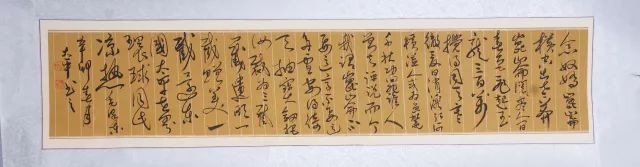 念奴娇崑崙
横空出世莽
崑崙阅尽人间
春色飞起玉
龙三百万
搅得周天寒
彻夏日消溶江河
横溢人或为鱼鳖
千秋功罪谁人
曾与评说而今
我谓崑崙不
要这高不要这
多雪安得倚
天抽宝剑把
汝裁为三截
一截遗欧一
截赠美一
截还东
国太平世界
环球同此
凉热毛泽东
辛卯